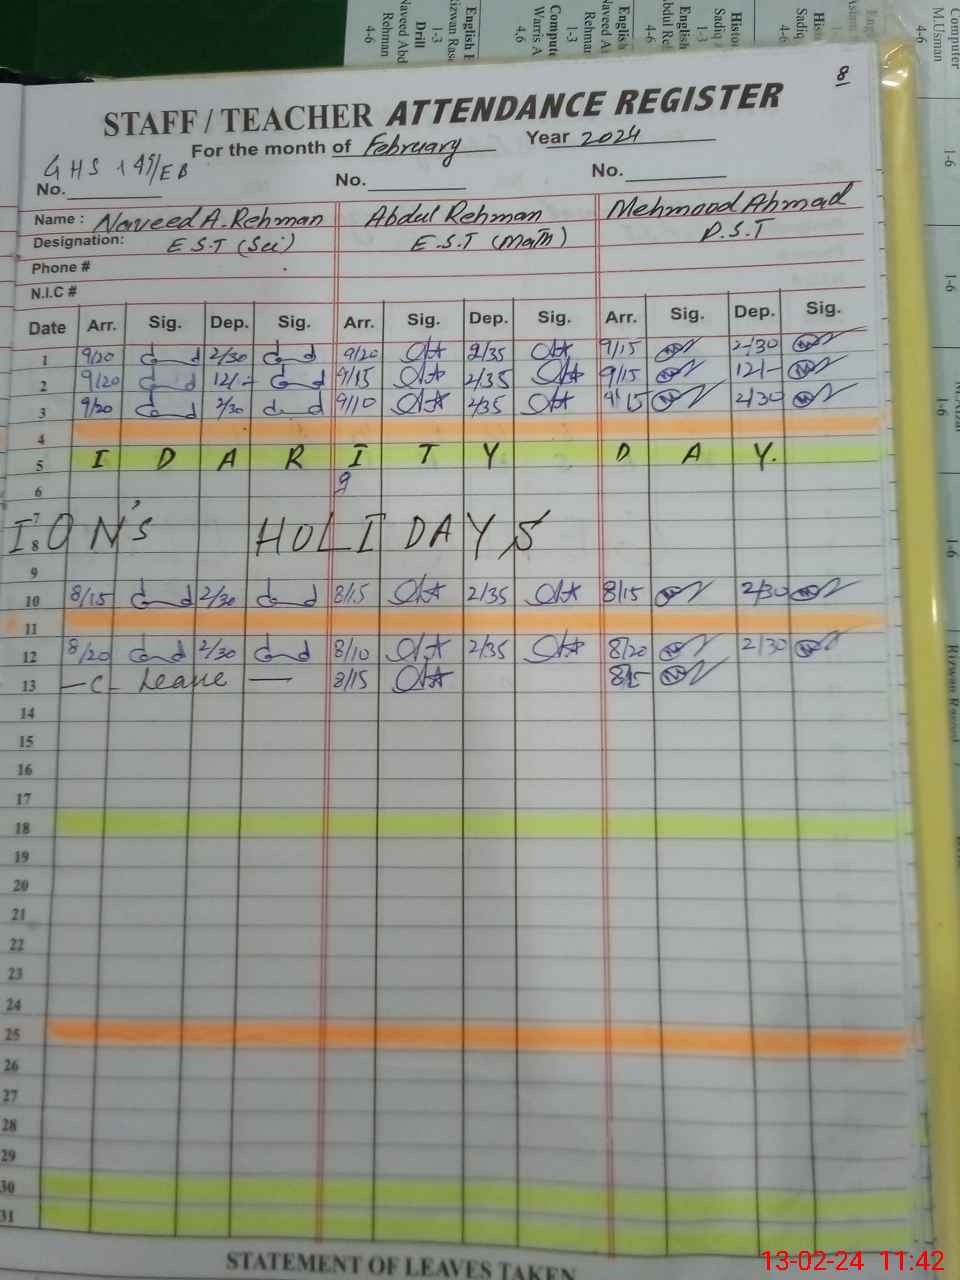 English
1-3
Drill
4-6
English
1-3
Computer
M.Usman
4-6
8
STAFF / TEACHER ATTENDANCE REGISTER
For the month of February Year 2024
GHS 149/EB
No. No. No.
Name : Naveed A. Rehman Abdul Rehman Mehmood Ahmad
Designation: E S.T (Sci) E.S.T (Math) P.S.T
Phone #
N.I.C #
Date Arr. Sig. Dep. Sig. Arr. Sig. Dep. Sig. Arr. Sig. Dep. Sig.
1 9/20 2/30 9/20 2/35 9/15 2/30
2 9/20 12/- 9/15 2/35 9/15 12/-
3 9/20 2/30 9/10 2/35 9/15 2/30
4
5 I D A R I T Y D A Y.
6 9
7
I O N's HOLIDAYS
8
9
10 8/15 2/30 8/15 2/35 8/15 2/30
11
12 8/20 2/30 8/10 2/35 8/20 2/30
13 - C - Leave - 8/15 8/15
14
15
16
17
18
19
20
21
22
23
24
25
26
27
28
29
30
31
STATEMENT OF LEAVES TAKEN
13-02-24 11:42